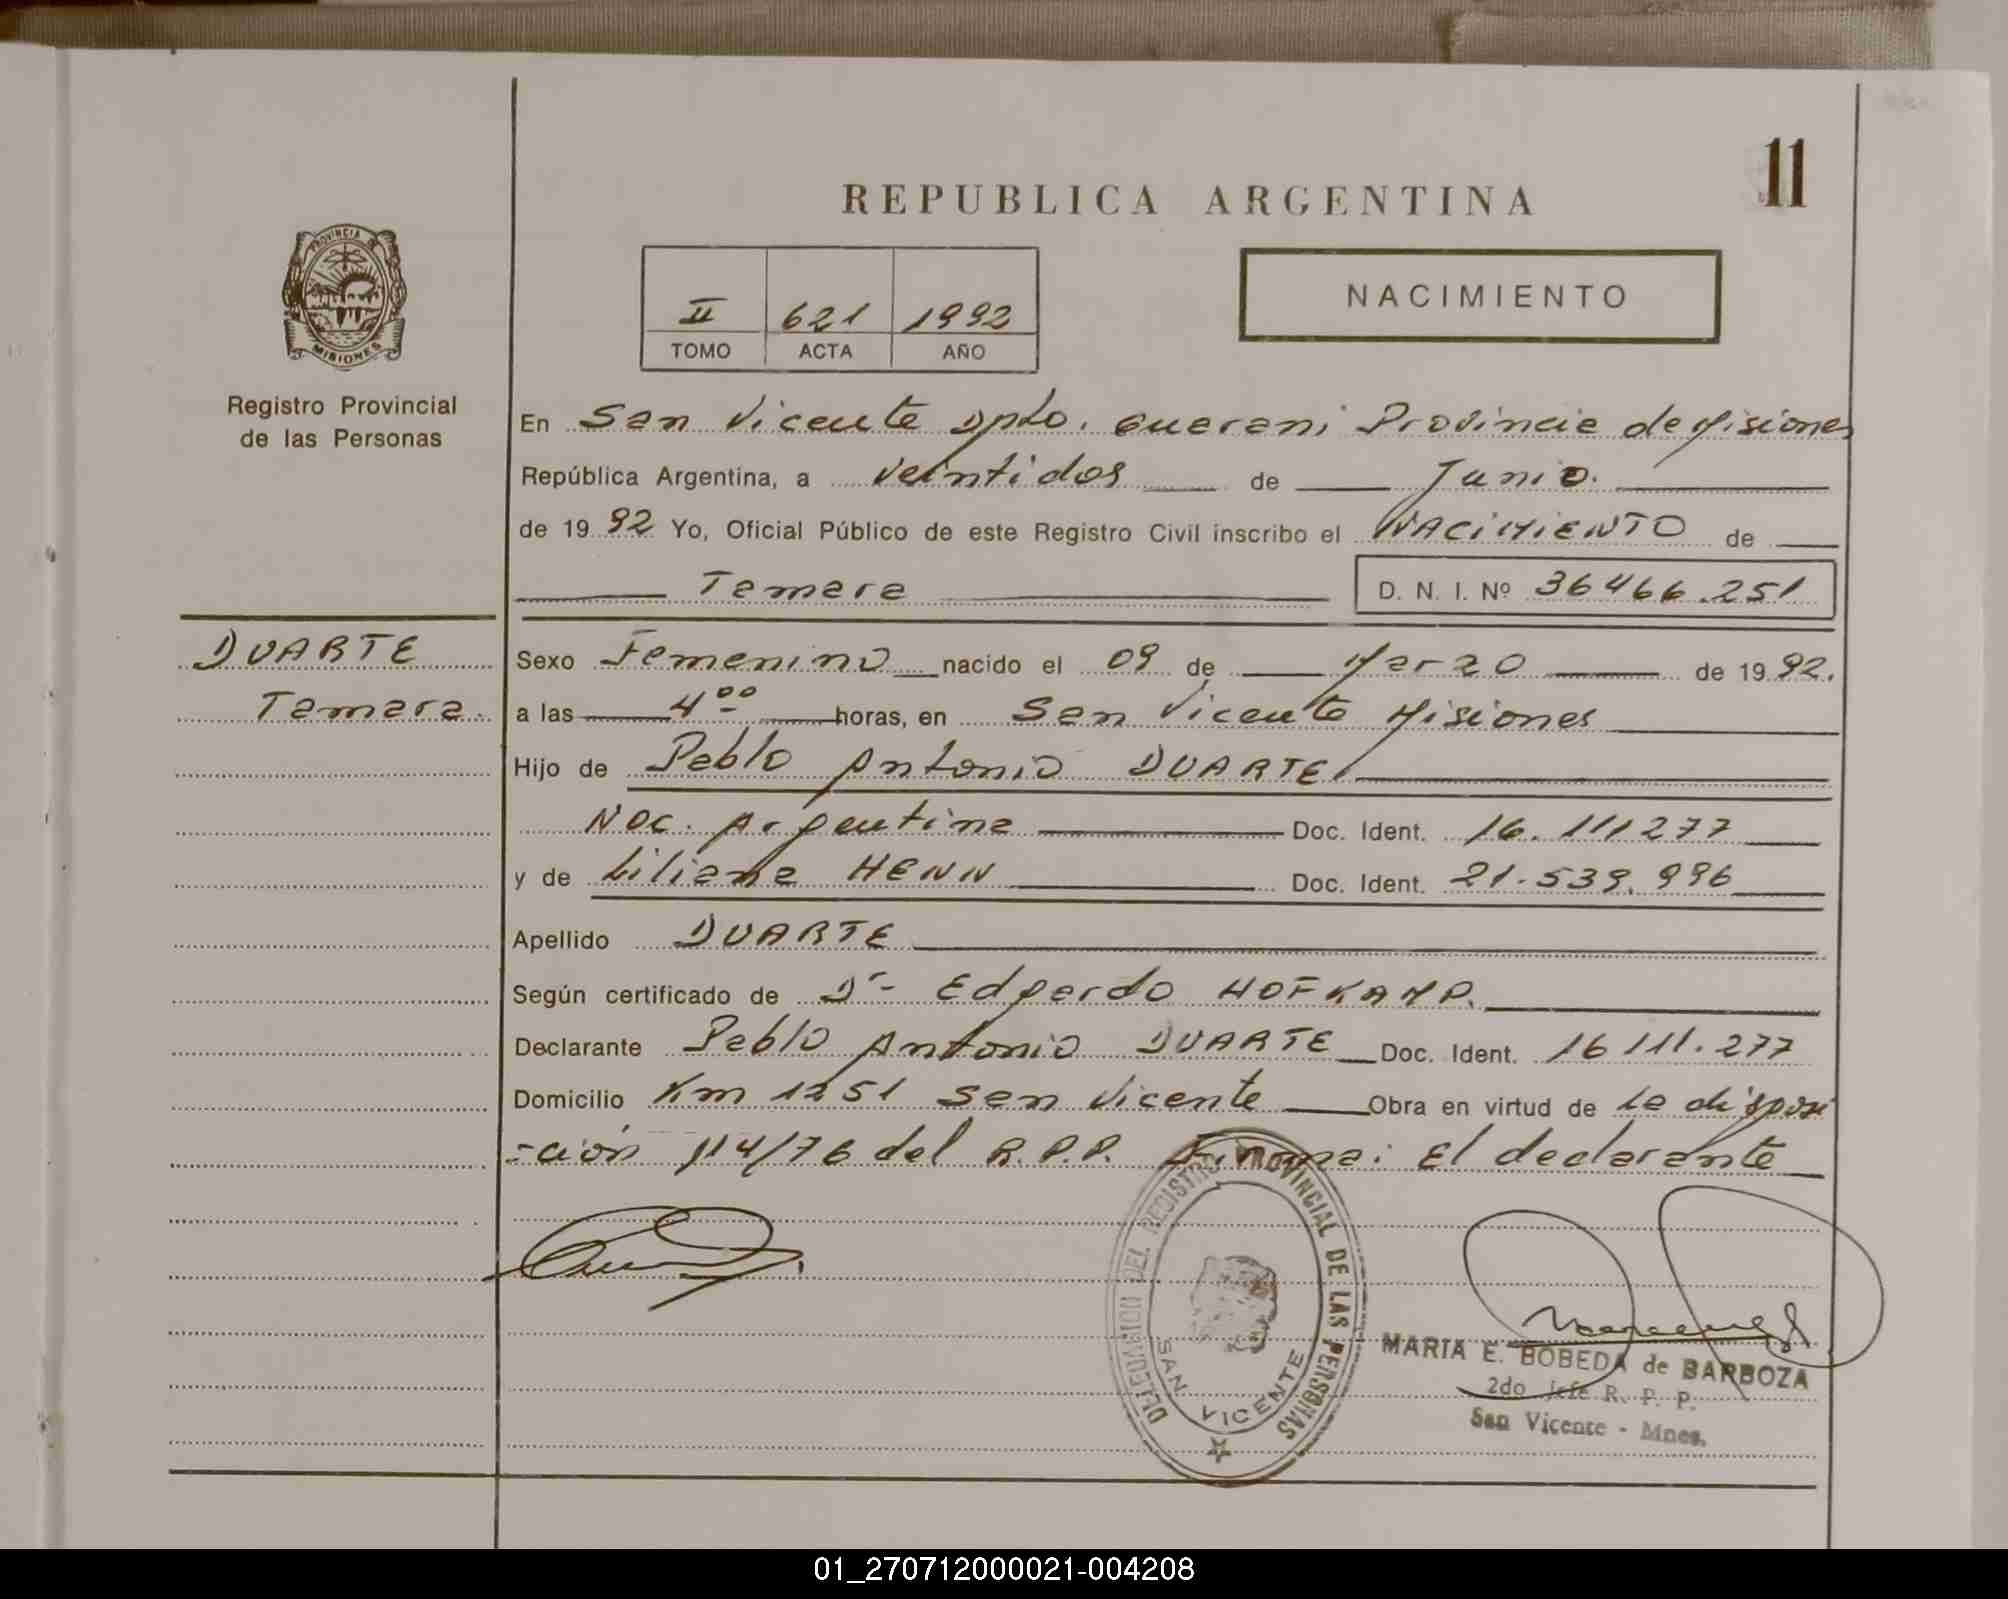 11
REPUBLICA ARGENTINA
PROVINCIA DE
MISIONES
Registro Provincial
de las Personas
II 621 1992
TOMO ACTA AÑO
NACIMIENTO
En San Vicente Dpto. Guarani Provincia de Misiones
República Argentina, a veintidos de Junio.
de 1992 Yo, Oficial Público de este Registro Civil inscribo el NACIMIENTO de
Tamara D. N. I. Nº 36466.251
DUARTE
Tamara.
Sexo Femenino nacido el 09 de Marzo de 1992.
a las 4ºº horas, en San Vicente Misiones
Hijo de Pablo Antonio DUARTE
Nac. Argentina Doc. Ident. 16.111277
y de Liliana HENN Doc. Ident. 21.539.996
Apellido DUARTE
Según certificado de Dr- Edgardo HOFKAMP.
Declarante Pablo Antonio DUARTE Doc. Ident. 16111.277
Domicilio Km 1251 San Vicente Obra en virtud de la disposi
-ción 114/76 del R.P.P. Firma: El declarante
DELEGACION DEL REGISTRO PROVINCIAL DE LAS PERSONAS
SAN VICENTE
MARIA E. BOBEDA de BARBOZA
2do. jefe R. P. P.
San Vicente - Mnes.
01_270712000021-004208